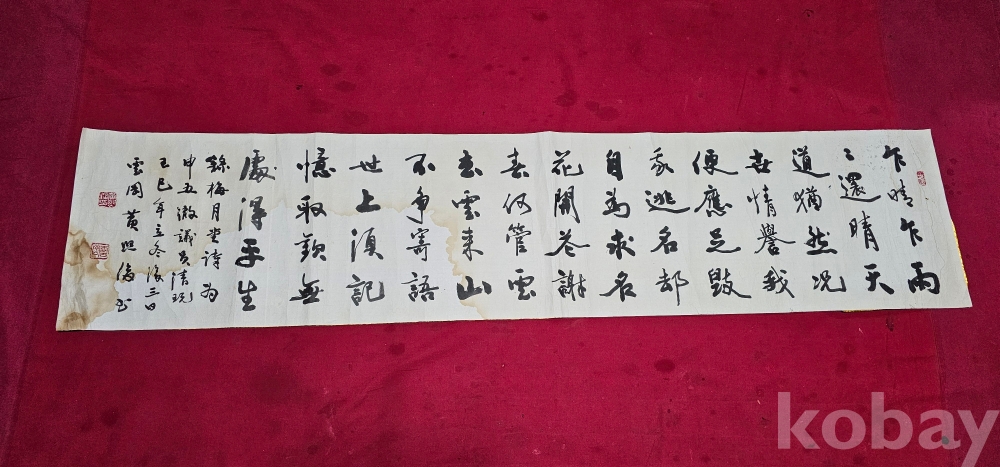 乍晴乍雨
〻還晴天
道猶然況
世情譽我
便應是毀
我逃名却
自為求名
花開花謝
春何管雲
去雲来山
不争寄語
世上須記
憶取歡無
處得平生
錄梅月堂詩為
申五澈議員清玩
己巳年立冬後三日
雲岡 黃照 書
kobay